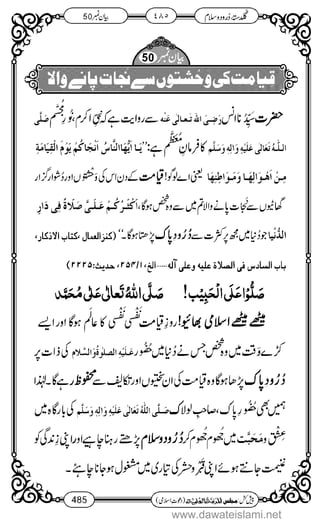 گلدستۂ درود و سلام ٤٨٥ بیان نمبر 50
بیان نمبر 50
قیامت کی وحشتوں سے نجات پانے والا
حضرتِ سیِّدُنا انس رَضِیَ اللہُ تَعَالٰی عَنْہُ سے روایت ہے کہ نبیِّ اکرم، نُورِ مُجَسَّم صَلَّی
اللہُ تَعَالٰی عَلَیْہِ وَاٰلِہٖ وَسَلَّم کا فرمانِ مُعَظَّم ہے: ”یَـا اَیُّہَا النَّاسُ اِنَّ اَنْجَاکُمْ یَوْمَ الْقِیَامَۃِ
مِـنْ اَہْـوَالِـہَـا وَمَـوَاطِنِہَا یعنی اے لوگو! قیامت کے دن اس کی وحشتوں اور دشوار گزار
گھاٹیوں سے نجات پانے والا تم میں سے وہ شخص ہوگا، اَکْـثَـرُکُـمْ عَـلَـیَّ صَلَاۃً فِی دَارِ
الدُّنْیَا جو دنیا میں مجھ پر کثرت سے دُرُودِ پاک پڑھتا ہوگا۔“ (کنزالعمال ،کتاب الاذکار،
باب السادس فی الصلاۃ علیہ وعلی آلہ......الخ،١/٢٥٤، حدیث:٢٢٢٥)
صَلُّوْا عَلَی الْحَبِیْب! صَلَّی اللہُ تَعَالٰی عَلٰی مُحَمَّد
میٹھے میٹھے اسلامی بھائیو! روزِ قیامت نَفْسِی نَفْسِی کا عالَم ہوگا اور ایسے
کڑے وقت میں جس شخص نے دنیا میں حُضُور عَـلَـیْہِ الصَّلٰوۃُ وَالسَّلَام کی ذات پر
دُرُودِ پاک پڑھا ہوگا وہ قیامت کی ان سختیوں اور تکالیف سے محفوظ رہے گا۔ لہٰذا
ہمیں بھی حُضُورِ پاک، صاحبِ لولاک صَـلَّـی اللہُ تَعَالٰی عَلَیْہِ وَاٰلِہٖ وَسَلَّم کی بارگاہ میں
عشق و مَحَبَّت میں جھوم جھوم کر دُرُود وسلام پڑھتے رہنا چاہیے اور اپنی زندگی کو
غنیمت جانتے ہوئے اپنی قبر و حشر کی تیاری میں مشغول ہوجانا چاہئے۔
پیش کش: مجلس اَلْمَدِیْنَۃُ الْعِلْمِیَّۃ (دعوتِ اسلامی) 485
www.dawateislami.net